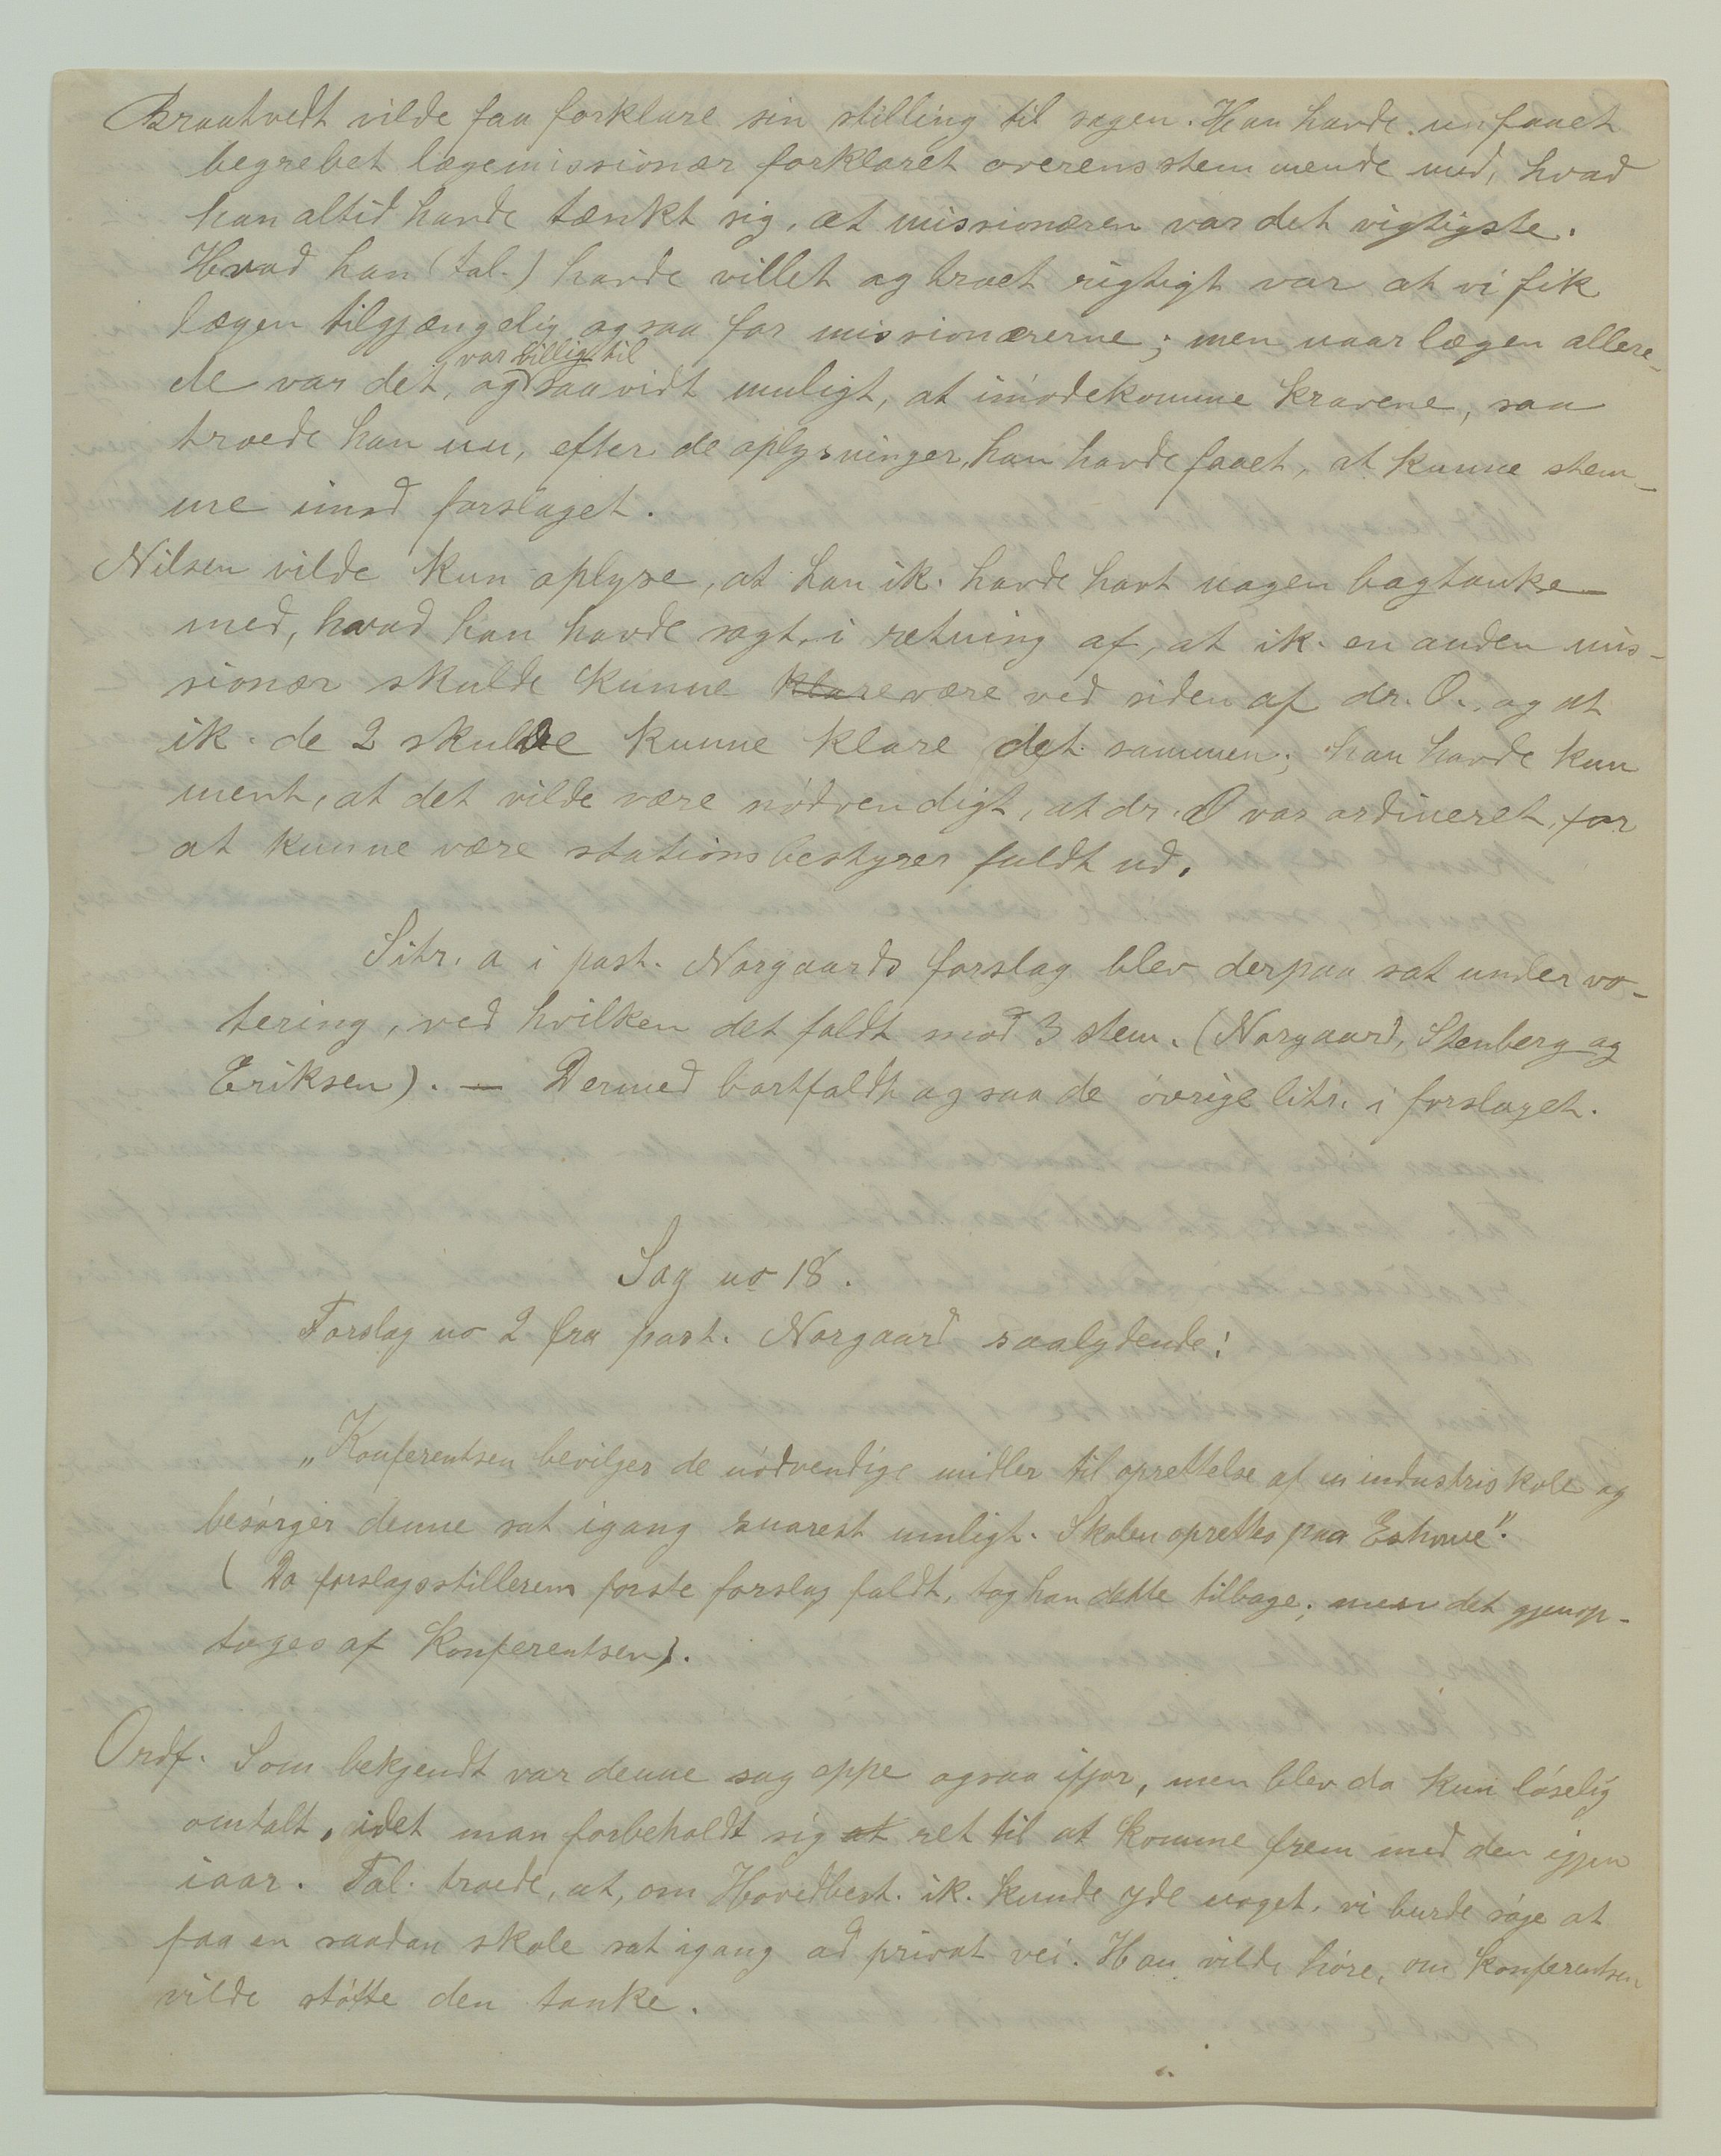 Braatvedt vilde faa forklare sin stilling til sagen. Han havde nu faaet
begrebet lægemissionær forklaret overensstemmende med, hvad
han altid havde tænkt sig, at missionæren var det vigtigste.
Hvad han (tal.) havde villet og troet rigtigt var at vi fik
lægen tilgjængelig ogsaa for missionærerne; men naar lægen allere-
var villig til
de var det, og saavidt muligt, at imødekomme kravene, saa
troede han nu, efter de oplysninger, han havde faaet, at kunne stem-
me imod forslaget.
Nilsen vilde kun oplyse, at han ik. havde havt nogen bagtanke
med, hvad han havde sagt, i retning af, at ik. en anden mis-
sionær skulde kunne klare være ved siden af dr. O., og at
ik. de 2 skulde kunne klare det sammen; han havde kun
ment, at det vilde være nødvendigt, at dr. O var ordineret, for
at kunne være stationsbestyrer fuldt ud.
Litr. a i past. Norgaards forslag blev derpaa sat under vo-
tering, ved hvilken det faldt mod 3 stem. (Norgaard, Stenberg og
Eriksen). — Dermed bortfaldt ogsaa de øvrige litr. i forslaget.
Sag no 18.
Forslag no 2 fra past. Norgaard saalydende:
„Konferentsen bevilger de nødvendige midler til oprettelse af en industriskole og
besørger denne sat igang snarest muligt. Skolen oprettes paa Eshowe".
(Da forslagsstillerens første forslag faldt, tog han dette tilbage; men det gjenop-
toges af Konferentsen).
Ordf. Som bekjendt var denne sag oppe ogsaa ifjor, men blev da kun løselig
omtalt, idet man forbeholdt sig at ret til at komme frem med den igjen
iaar. Tal. troede, at, om Hovedbest. ik. kunde yde noget, vi burde søge at
faa en saadan skole sat igang ad privat vei. Han vilde høre, om konferentsen
vilde støtte den tanke.